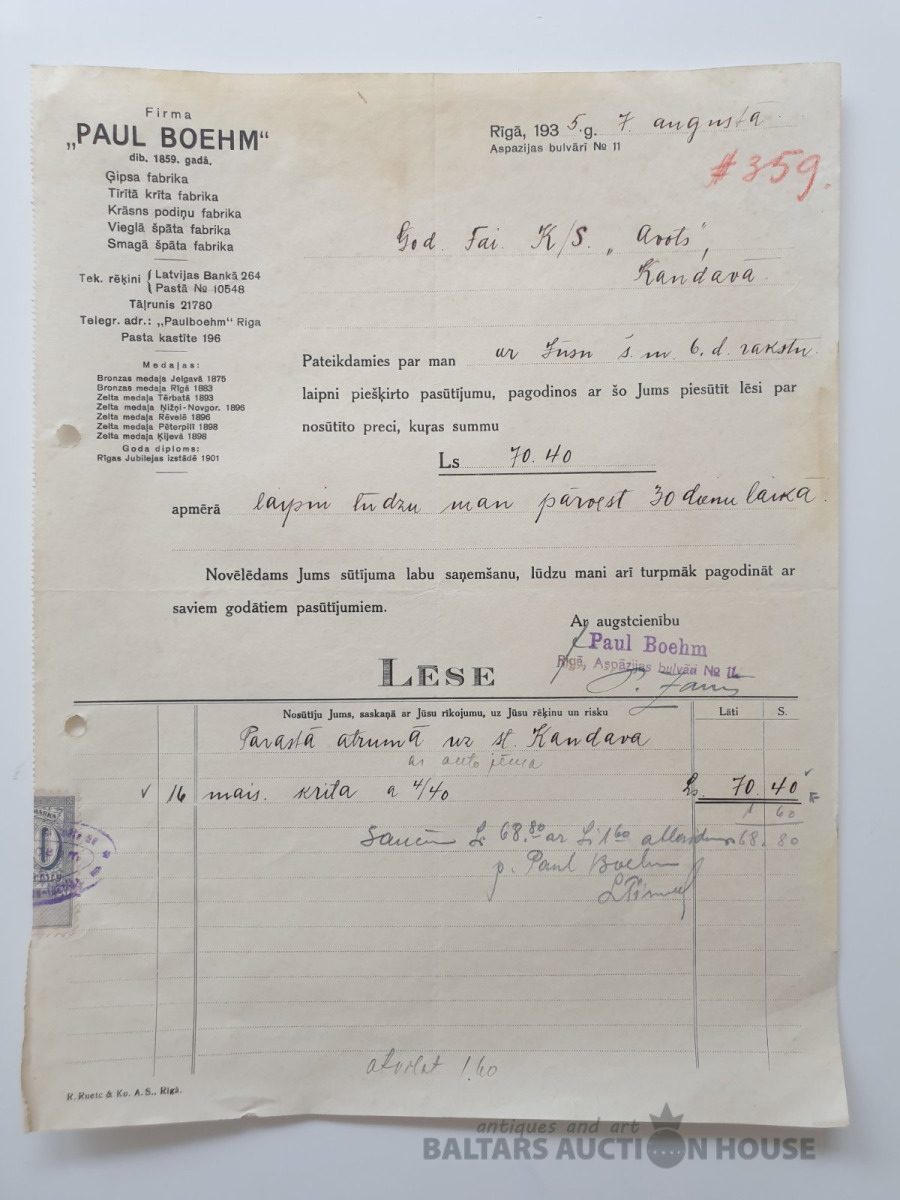 Firma
„PAUL BOEHM“
dib. 1859. gadā.
Ģipsa fabrika
Tīrītā krīta fabrika
Krāsns podiņu fabrika
Vieglā špāta fabrika
Smagā špāta fabrika
Tek. rēķini { Latvijas Bankā 264
Pastā № 10548
Tāļrunis 21780
Telegr. adr.: „Paulboehm“ Rīga
Pasta kastīte 196
Medaļas:
Bronzas medaļa Jelgavā 1875
Bronzas medaļa Rīgā 1883
Zelta medaļa Tērbatā 1893
Zelta medaļa Ņižņi-Novgor. 1896
Zelta medaļa Rēvelē 1896
Zelta medaļa Pēterpilī 1898
Zelta medaļa Ķijevā 1898
Goda diploms:
Rīgas Jubilejas izstādē 1901
Rīgā, 1935.g. 7. augustā
Aspazijas bulvārī № 11
#359.
God. Fai. K/S. „Avots“,
Kandavā.
Pateikdamies par man ar Jūsu š. m. 6. d. rakstu
laipni piešķirto pasūtījumu, pagodinos ar šo Jums piesūtīt lēsi par
nosūtīto preci, kuŗas summu
Ls 70.40
apmērā laipni lūdzu man pārvest 30 dienu laikā.
Novēlēdams Jums sūtījuma labu saņemšanu, lūdzu mani arī turpmāk pagodināt ar
saviem godātiem pasūtījumiem.
Ar augstcienību
Paul Boehm
Rīgā, Aspāzijas bulvārī № 11.
LĒSE
Nosūtīju Jums, saskaņā ar Jūsu rīkojumu, uz Jūsu rēķinu un risku
Lāti S.
Parastā atrumā uz st. Kandava
ar auto
16 mais. krita a 4/40 Ls. 70.40
1 60
Ls 68.80 ar Ls 1.60 68.80
p. Paul Boehm
1.60
R. Ruetz & Ko. A. S., Rīgā.
antiques and art
BALTARS AUCTION HOUSE